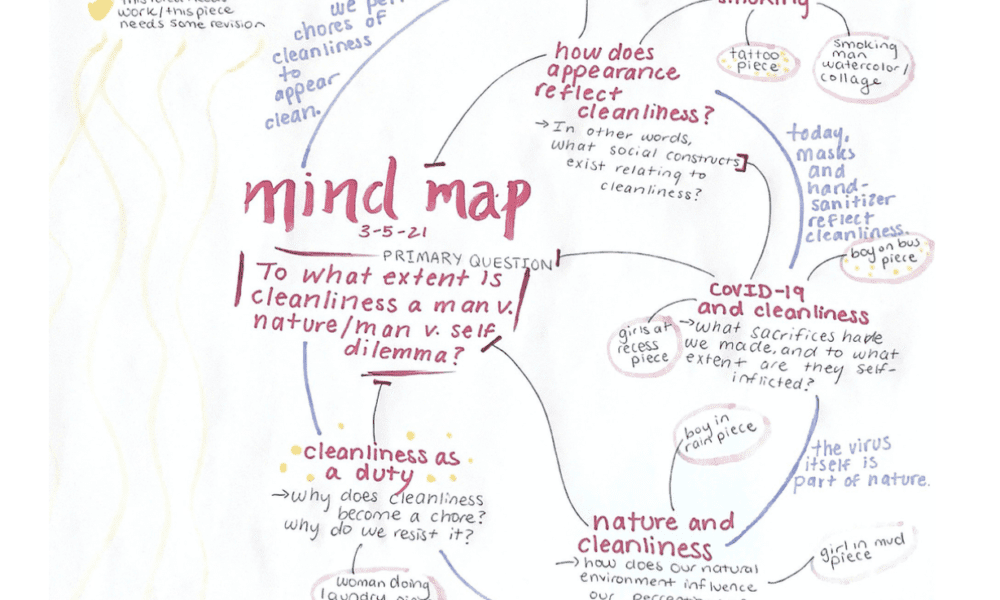 work/this piece
needs some revision
chores of
cleanliness
to
appear
clean.
smoking
tattoo
piece
smoking
man
watercolor/
collage
how does
appearance
reflect
cleanliness?
→In other words,
what social constructs
exist relating to
cleanliness?
today,
masks
and
hand-
sanitizer
reflect
cleanliness.
mind map
3-5-21
PRIMARY QUESTION
To what extent is
cleanliness a man v.
nature/man v. self
dilemma?
boy on bus
piece
COVID-19
and cleanliness
→what sacrifices have
we made, and to what
extent are they self-
inflicted?
girls at
recess
piece
boy in
rain piece
the virus
itself is
part of nature.
cleanliness as
a duty
→why does cleanliness
become a chore?
why do we resist it?
woman doing
nature and
cleanliness
→how does our natural
environment influence
our
girl in mud
piece